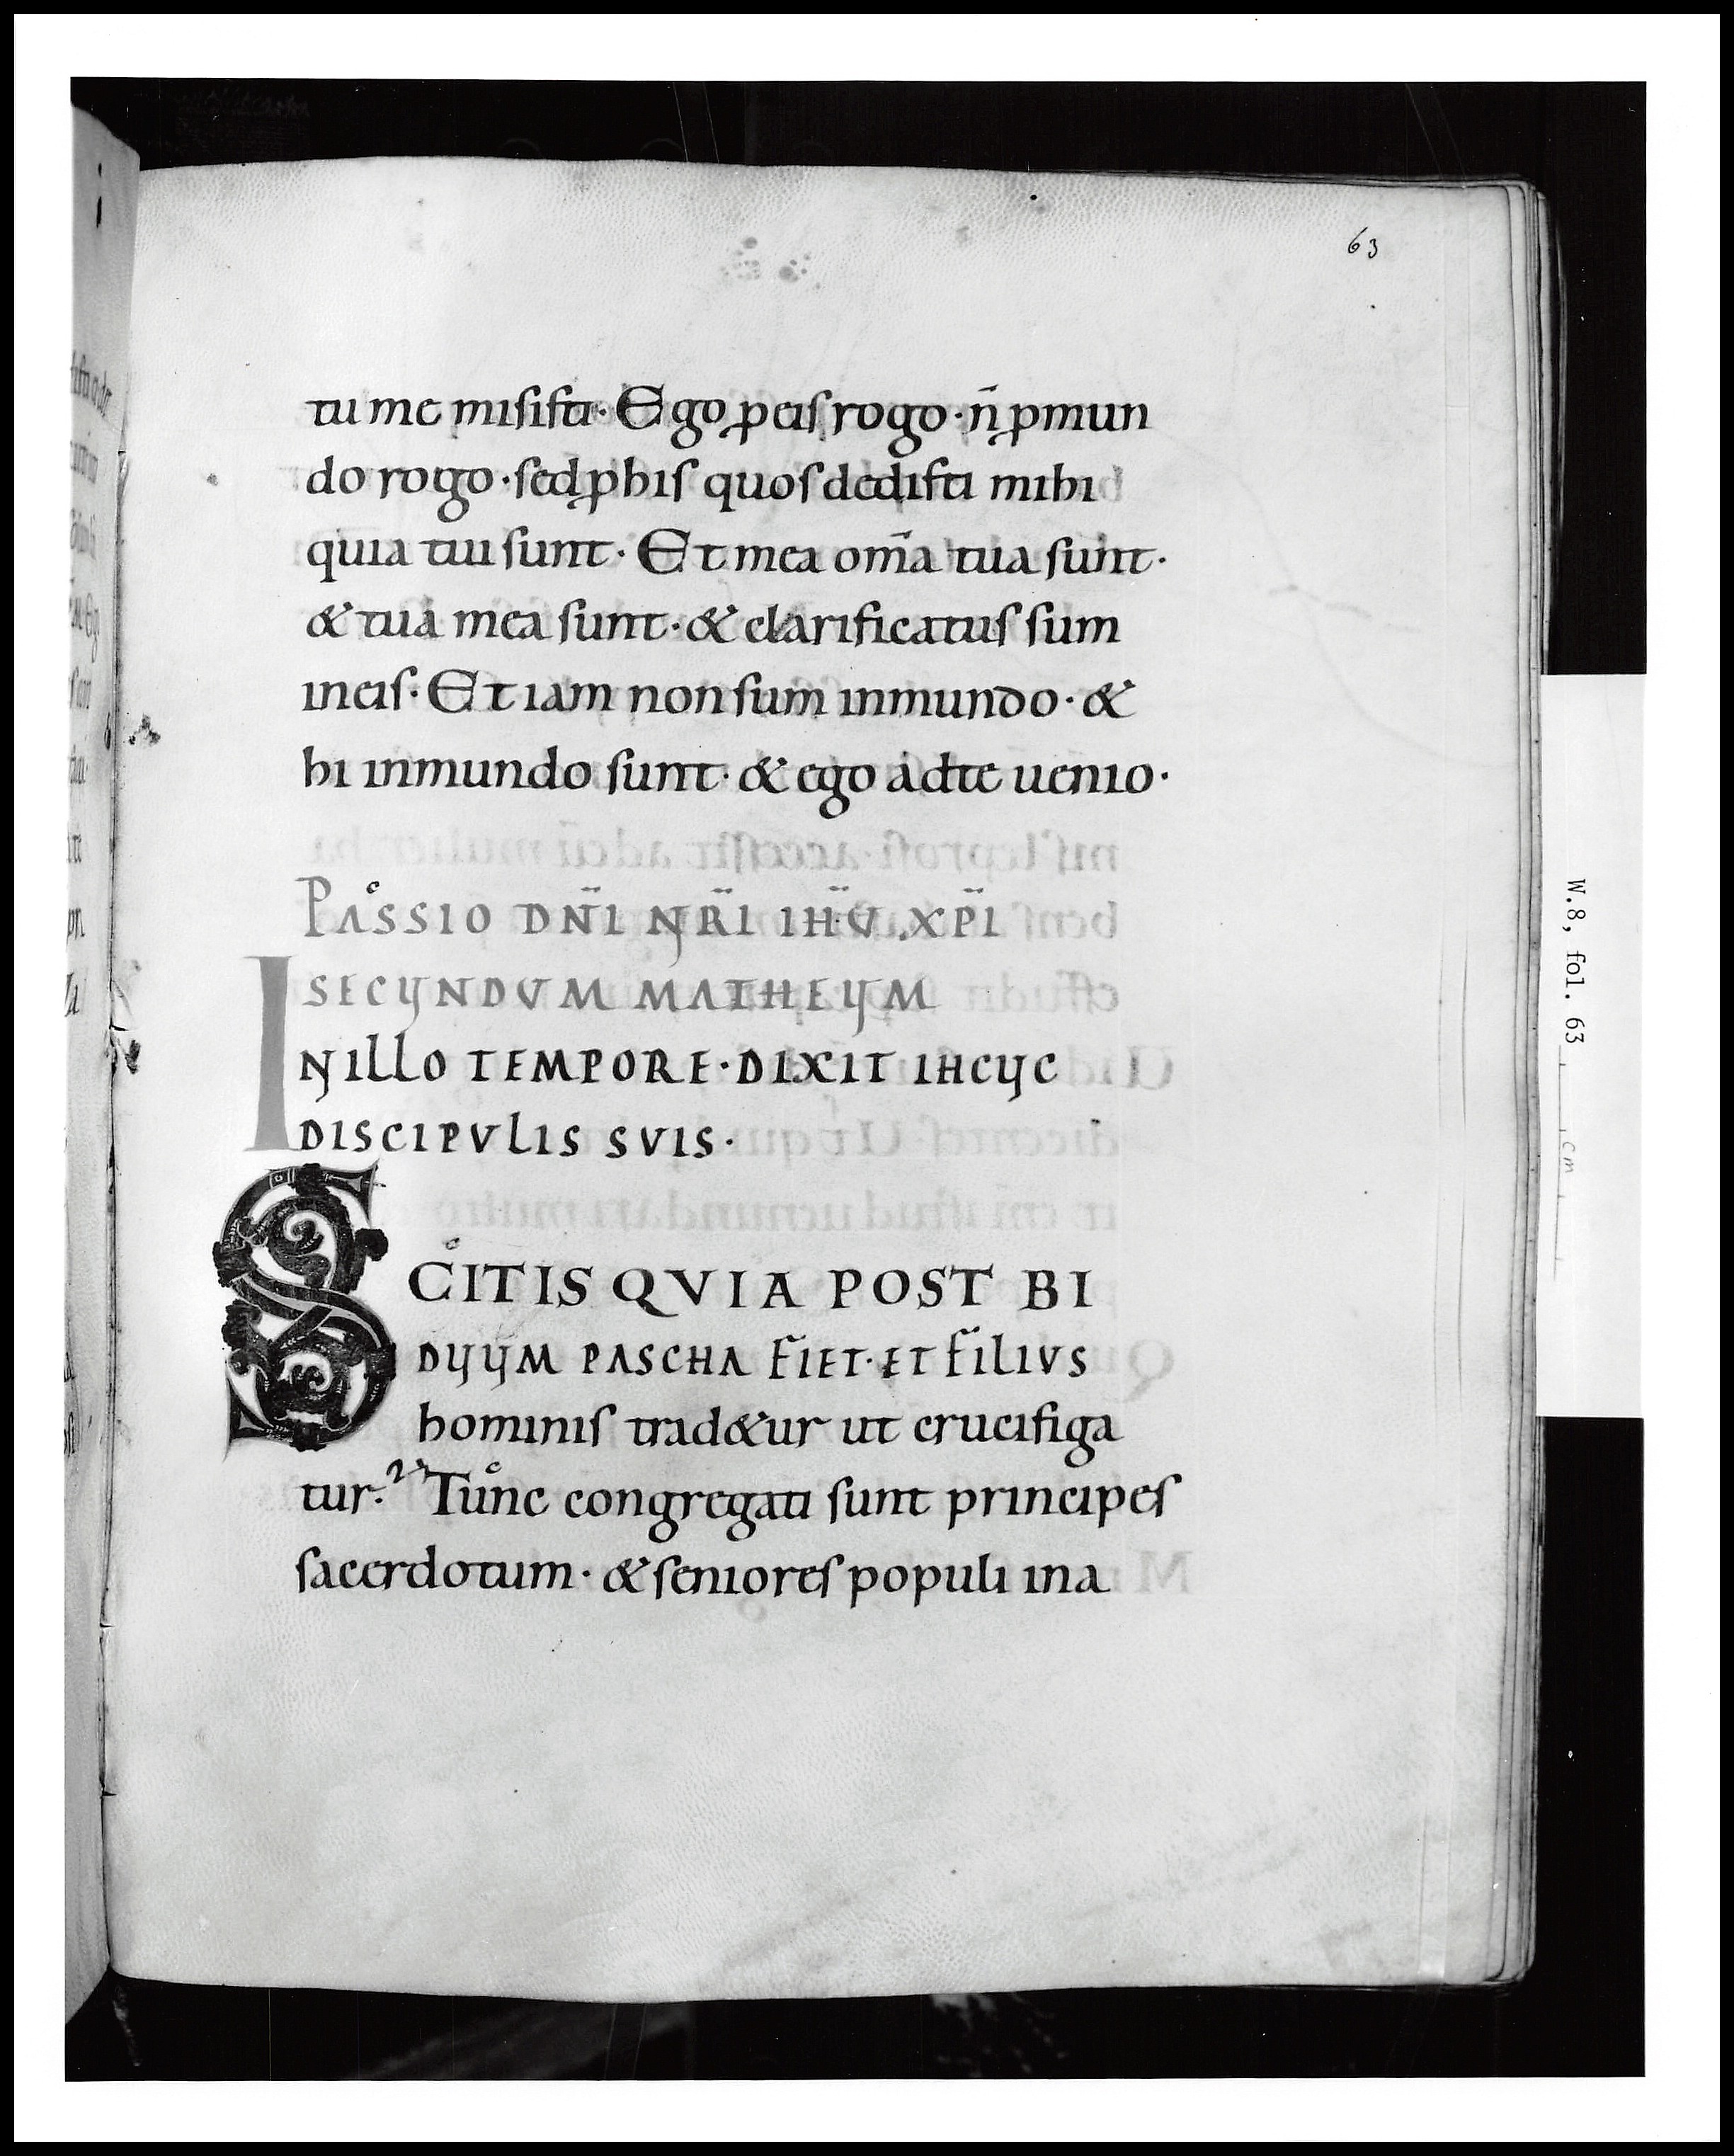 63
tu me misisti· Ego p eis rogo· n̄ p mun
do rogo· sed p his quos dedisti mihi
quia tui sunt· Et mea om̄a tua sunt·
& tua mea sunt· & clarificatus sum
in eis· Et iam non sum in mundo· &
hi in mundo sunt· & ego ad te uenio·
PASSIO DN̄I NR̄I IHŪ XP̄I
SECUNDVM MATHEUM
IN ILLO TEMPORE· DIXIT IHCUC
DISCIPVLIS SVIS·
SCITIS QVIA POST BI
DUUM PASCHA FIET· ET FILIVS
hominis trad&ur ut crucifiga
tur· Tunc congregati sunt principes
sacerdotum· & seniores populi in a
W.8, fol. 63
cm